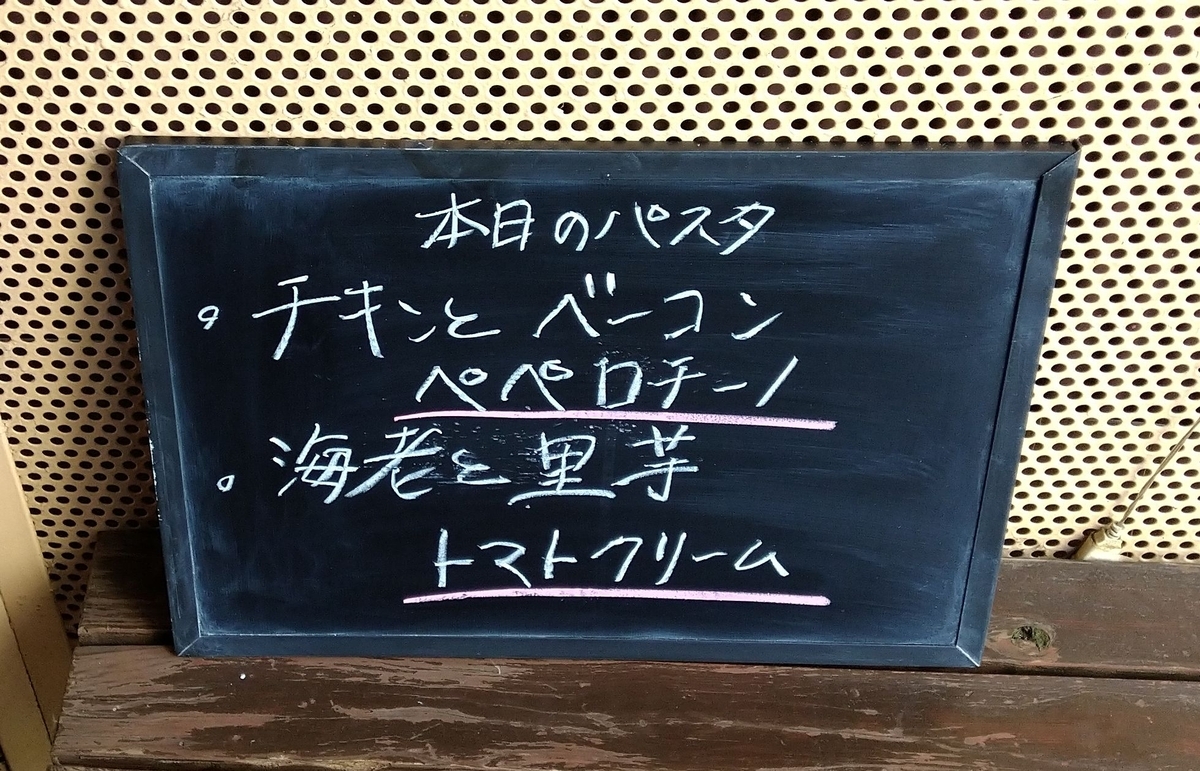 本日のパスタ
。チキンとベーコン
ペペロチーノ
。海老と里芋
トマトクリーム